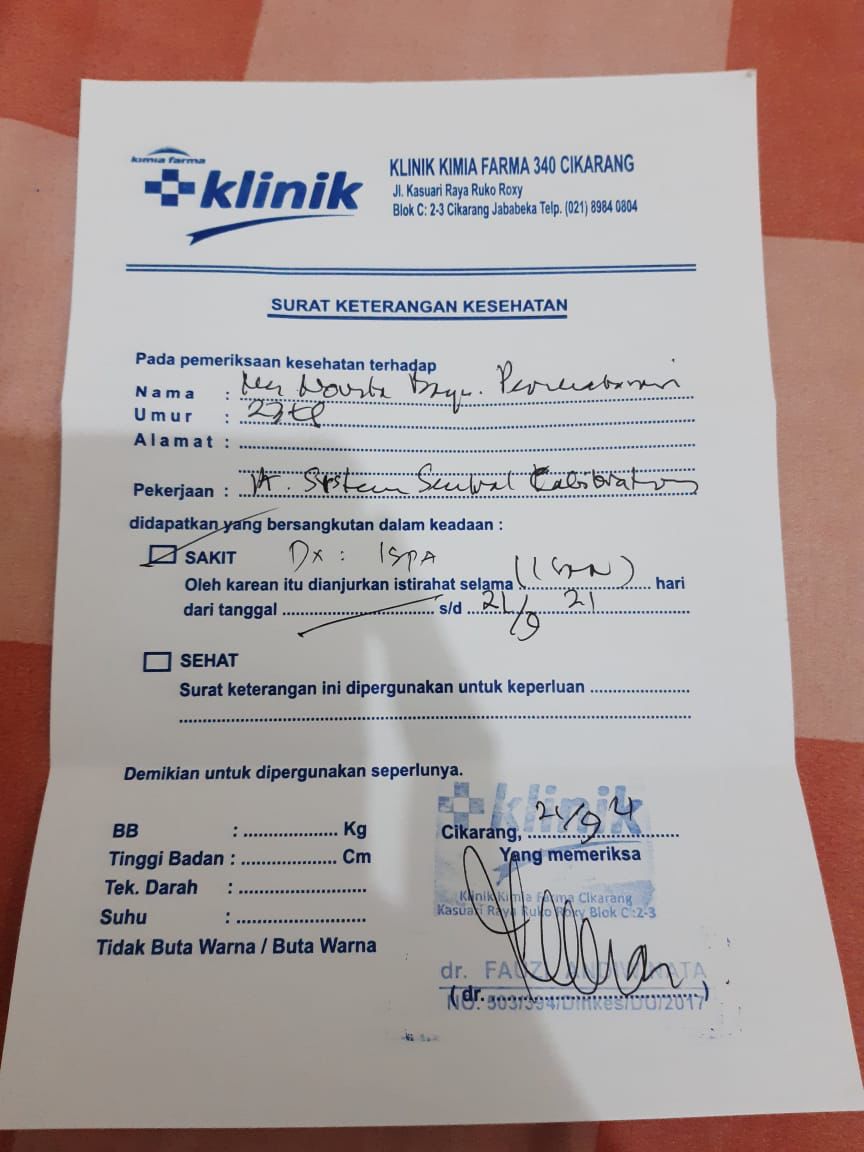 kimia farma
klinik
KLINIK KIMIA FARMA 340 CIKARANG
Jl. Kasuari Raya Ruko Roxy
Blok C: 2-3 Cikarang Jababeka Telp. (021) 8984 0804
SURAT KETERANGAN KESEHATAN
Pada pemeriksaan kesehatan terhadap
Nama :
Umur :
Alamat :
Pekerjaan : System
didapatkan yang bersangkutan dalam keadaan :
SAKIT Dx : ISPA
Oleh karean itu dianjurkan istirahat selama hari
dari tanggal s/d 21/9 21
SEHAT
Surat keterangan ini dipergunakan untuk keperluan
Demikian untuk dipergunakan seperlunya.
BB : Kg
Tinggi Badan : Cm
Tek. Darah :
Suhu :
Tidak Buta Warna / Buta Warna
klinik
Cikarang, 21/9
Yang memeriksa
Klinik Kimia Farma Cikarang
Kasuari Raya Ruko Roxy Blok C :2-3
dr.
(dr. )
NO. 503/394/Dinkes/DU/2017